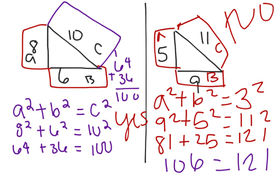 10
8
a
c
6
B
64
+36
100
a² + b² = c²
8² + 6² = 10²
64 + 36 = 100
yes
no
A
5
11
c
9
B
a² + b² = 3²
9² + 5² = 11²
81 + 25 = 121
106 = 121